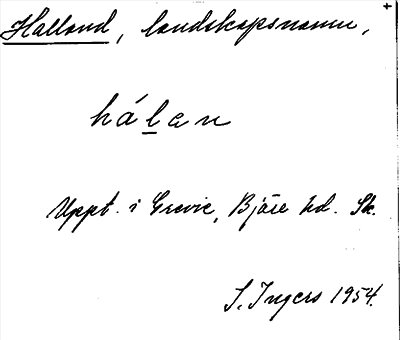 Halland, landskapsnamn,
hálan
Uppt. i Grevie, Bjäre hd. Sk.
I. Ingers 1954.